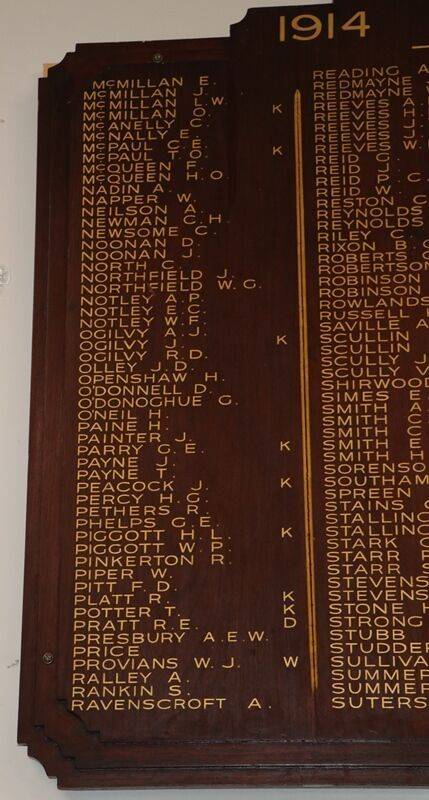 1914
McMILLAN E.
McMILLAN J.
McMILLAN L.W.
McMILLAN O. K
McANELLY C.
McNALLY E.
McPAUL C.E.
McPAUL T.O. K
McQUEEN F.
McQUEEN H.O.
NADIN A.
NAPPER W.
NEILSON A.
NEWMAN C.H.
NEWSOME C.
NOONAN D.
NOONAN J.
NORTH C.
NORTHFIELD J.
NORTHFIELD W.G.
NOTLEY A.P.
NOTLEY E.C.
NOTLEY W.F.
OGILVY A.J.
OGILVY J. K
OGILVY R.D.
OLLEY J.D.
OPENSHAW H.
O'DONNELL D.
O'DONOGHUE G.
O'NEIL H.
PAINE H.
PAINTER J.
PARRY G.E. K
PAYNE J.
PAYNE T.
PEACOCK J. K
PERCY H.G.
PETHERS R.
PHELPS G.E.
PIGGOTT H.L. K
PIGGOTT W.P.
PINKERTON R.
PIPER W.
PITT F.D.
PLATT R. K
POTTER T. K
PRATT R.E. D
PRESBURY A.E.W.
PRICE
PROVIANS W.J. W
RALLEY A.
RANKIN S.
RAVENSCROFT A.
READING A
REDMAYNE
REDMAYNE
REEVES A.
REEVES H.
REEVES J.
REEVES J.
REEVES W.
REID G.
REID J.
REID P.C.
REID W.
RESTON C
REYNOLDS
REYNOLDS
RILEY C.
RIXON B.
ROBERTS
ROBERTSON
ROBINSON
ROBINSON
ROWLANDS
RUSSELL
SAVILLE A
SCULLIN
SCULLIN
SCULLY J
SCULLY V
SHIRWOOD
SIMES E.
SMITH A.
SMITH C
SMITH C
SMITH E
SMITH H
SORENSO
SOUTHAM
SPREEN
STAINS
STALLING
STALLING
STARK
STARR
STARR
STEVENS
STEVENS
STONE H
STRONG
STUBB
STUDDER
SULLIVA
SUMMER
SUMMER
SUTERS